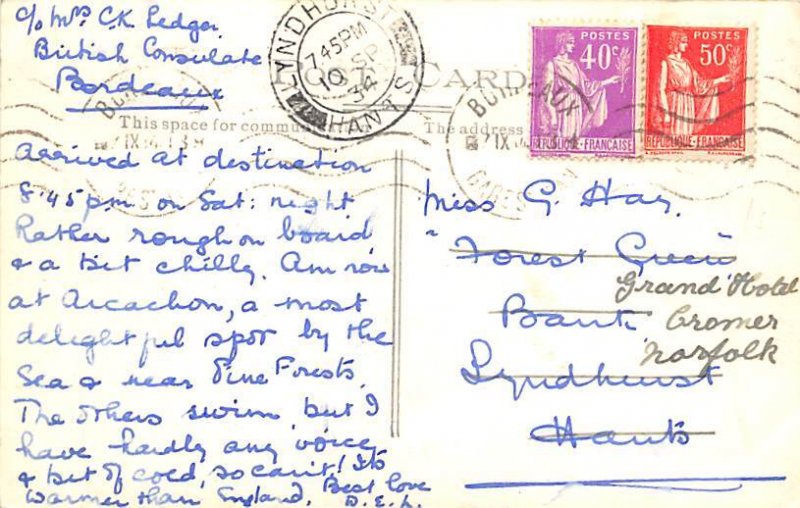 c/o Mrs C.K. Ledger
British Consulate
Bordeaux
POST CARD
This space for communication
The address
LYNDHURST
7.45 PM
10 SP
34
HANTS
BORDEAUX
BORDEAUX
POSTES
40c
REPUBLIQUE-FRANCAISE
POSTES
50c
REPUBLIQUE-FRANCAISE
Arrived at destination
8.45 pm on Sat: night
Rather rough on board
& a bit chilly. Am now
at Arcachon, a most
delightful spot by the
Sea & near Pine Forests.
The others swim but I
have hardly any voice
& bit of cold, so can't! Its
warmer than England, Best love
D.E.L.
Miss G. Hay,
"Forest Green
Bank
Lyndhurst
Hants
Grand Hotel
Cromer
Norfolk